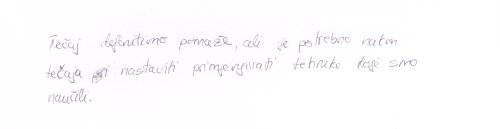 Tečaj definitivno pomaže, ali je potrebno nakon
tečaja nastaviti primjenjivati tehnike koje smo
naučili.